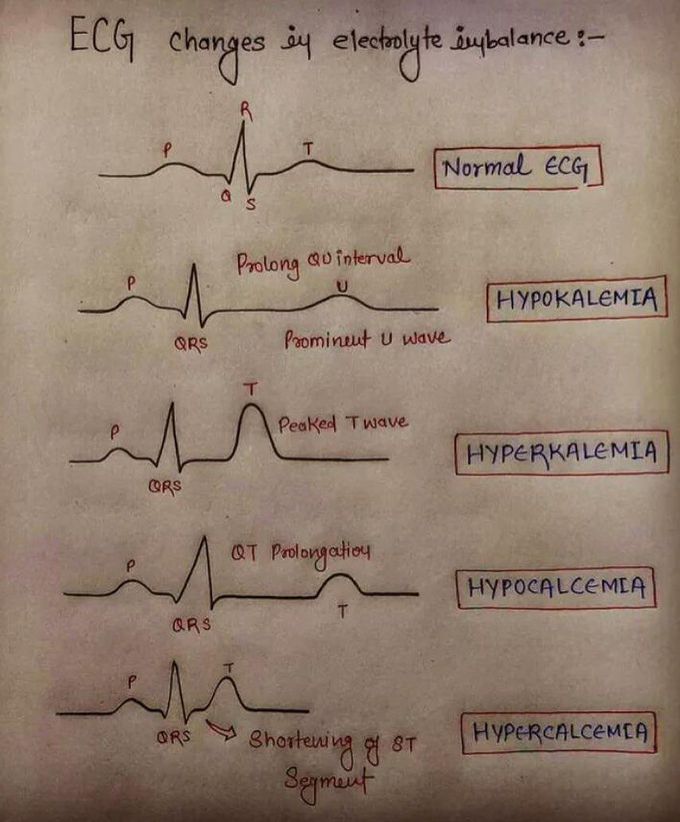 ECG changes in electrolyte imbalance :-
R
P
T
Normal ECG
Q
S
Prolong QU interval
P
U
HYPOKALEMIA
QRS
Prominent U wave
T
Peaked T wave
P
HYPERKALEMIA
QRS
QT Prolongation
P
HYPOCALCEMIA
T
QRS
P
T
QRS
Shortening of ST
Segment
HYPERCALCEMIA